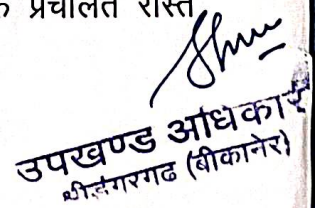 प्रचालित रास्त
उपखण्ड अधिकारी
श्रीडूंगरगढ (बीकानेर)